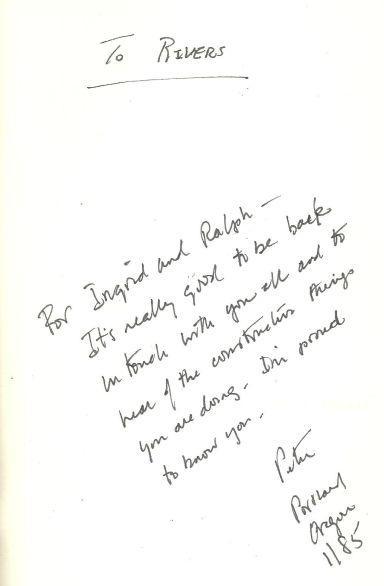 To Rivers
For Ingrid and Ralph –
It's really good to be back
in touch with you all and to
hear of the constructive things
you are doing. I'm proud
to know you.
Peter
Portland
Oregon
1/85